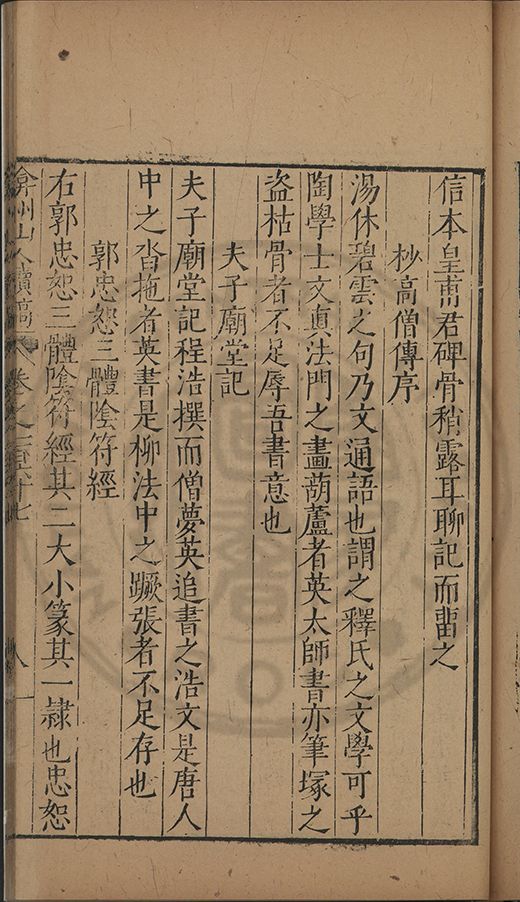 信本皇甫君碑骨稍露耳聊記而畱之
杪高僧傳序
湯休碧雲之句乃文通語也謂之釋氏之文學可乎
陶學士文真法門之畫葫蘆者英太師書亦筆塚之
盗枯骨者不足辱吾書意也
夫子廟堂記
夫子廟堂記程浩撰而僧夢英追書之浩文是唐人
中之沓拖者英書是柳法中之蹶張者不足存也
郭忠恕三體陰符經
右郭忠恕三體陰符經其二大小篆其一隷也忠恕
弇州山人續稿 卷之一百六十七 八